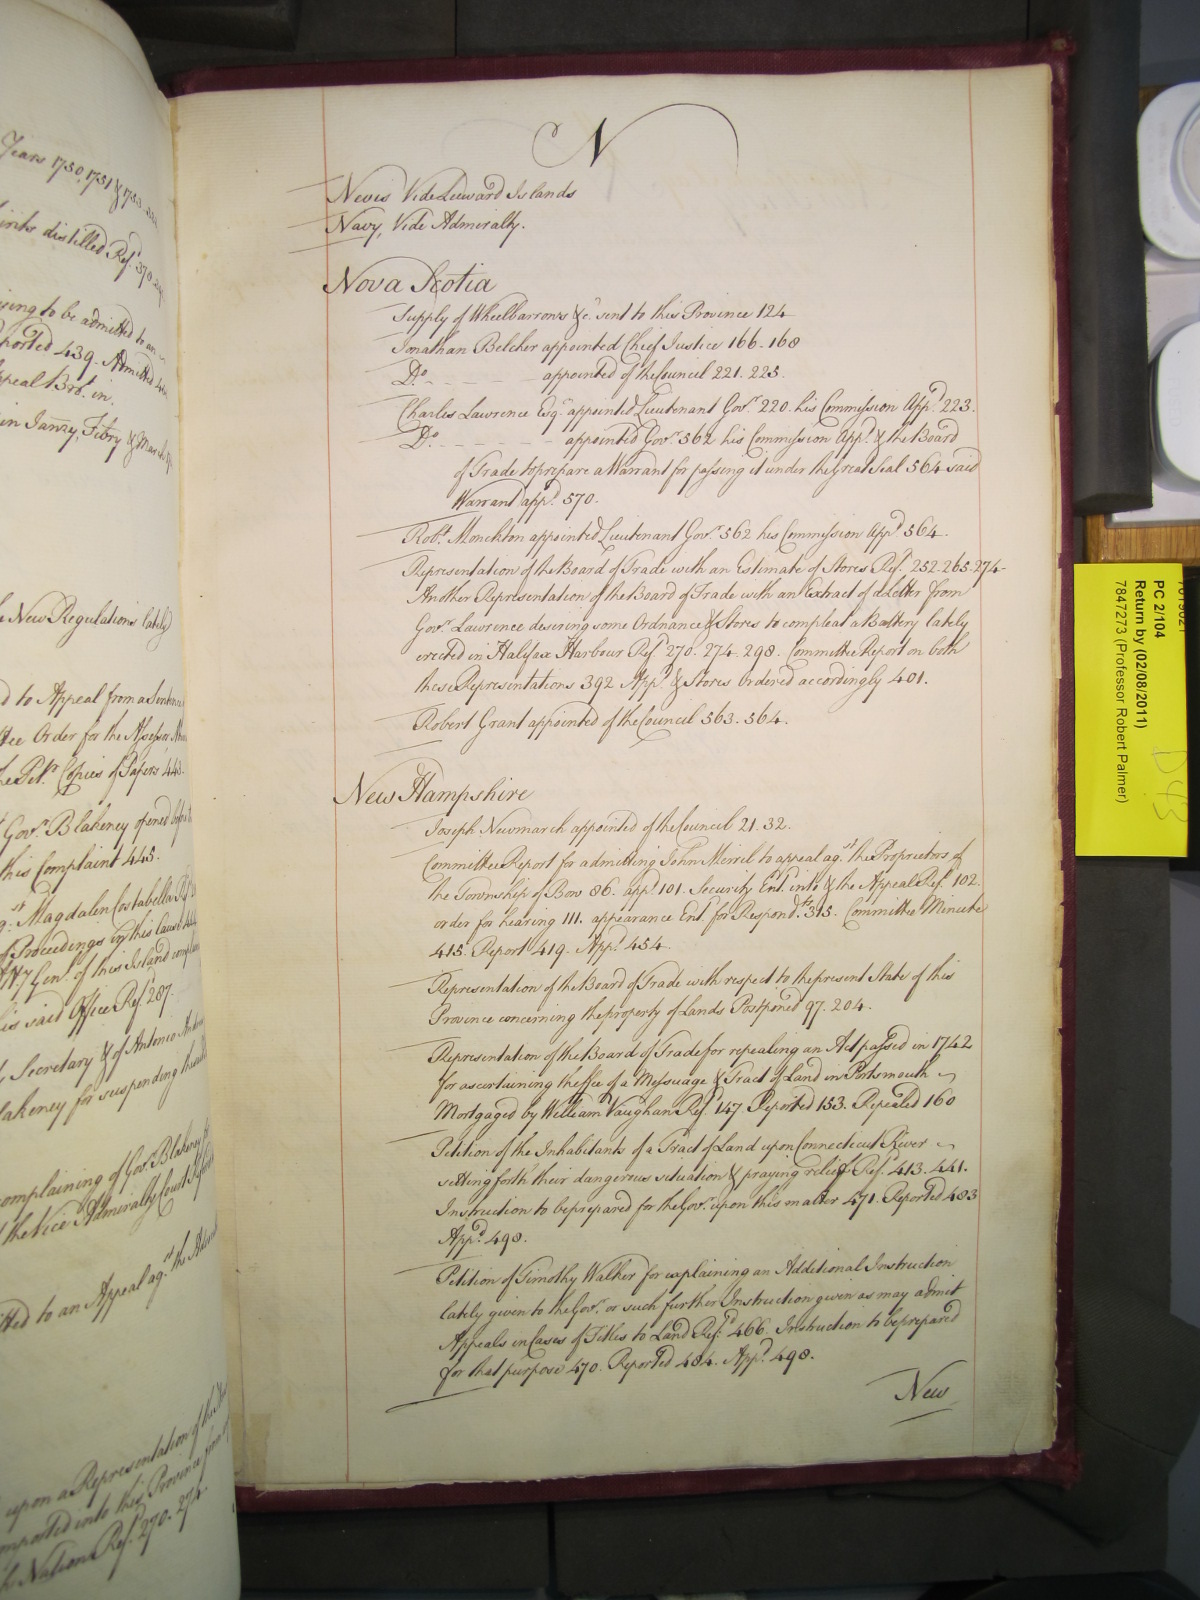 Years 1750, 1751 & 1753
distilled Ref.d 370
to be admitted to an
439. Admitted
in.
in Janry, Febry & March
New Regulations lately
d to Appeal from a Sentence
Order for the Assessor
Copies of Papers 443.
Gov.r Blakeney opened
this Complaint 445.
Magdalen Costabella
of Proceedings in this Cause
Gen.l of this Island
said Office Ref.d 287.
Secretary & of Antonio
Blakeney for suspending
complaining of Gov.r Blakeney
the Vice Admiralty Court
to an Appeal ag.st the
upon a Representation of the
imported into this Province from
Nations Ref.d 270. 274.
N
Nevis Vide Leeward Islands
Navy, Vide Admiralty.
Nova Scotia
Supply of Wheelbarrows &c. sent to this Province 124
Jonathan Belcher appointed Chief Justice 166-168
D.o - - - - - appointed of the Council 221. 225.
Charles Lawrence Esq.r appointed Lieutenant Gov.r 220. his Commission App.d 223.
D.o - - - - - - appointed Gov.r 562 his Commission App.d & the Board
of Trade to prepare a Warrant for passing it under the Great Seal 564 said
Warrant app.d 570.
Rob.t Monckton appointed Lieutenant Gov.r 562 his Commission App.d 564.
Representation of the Board of Trade with an Estimate of Stores Ref.d 252. 265. 274-
Another Representation of the Board of Trade with an Extract of a Letter from
Gov.r Lawrence desiring some Ordnance & Stores to compleat a Battery lately
erected in Halifax Harbour Ref.d 270. 274. 298. Committee Report on both
these Representations 392 App.d & Stores Ordered accordingly 401.
Robert Grant appointed of the Council 563. 564.
New Hampshire
Joseph Newmarch appointed of the Council 21. 32.
Committee Report for admitting John Merril to appeal ag.st the Proprietors of
the Township of Bow 86. app.d 101. Security Ent.d into & the Appeal Ref.d 102.
order for hearing 111. appearance Ent.d for Respond.ts 315. Committee Minute
415. Report 419. App.d 454.
Representation of the Board of Trade with respect to the present State of this
Province concerning the property of Lands Postponed 97. 204.
Representation of the Board of Trade for repealing an Act passed in 1742
for ascertaining the ffee of a Messuage & Tract of Land in Portsmouth
Mortgaged by William Vaughan Ref.d 147. Reported 153. Repealed 160
Petition of the Inhabitants of a Tract of Land upon Connecticut River
setting forth their dangerous situation & praying relief Ref.d 413. 441.
Instruction to be prepared for the Gov.r upon this matter 471. Reported 483
App.d 498.
Petition of Timothy Walker for explaining an Additional Instruction
lately given to the Gov.r or such further Instruction given as may admit
Appeals in Cases of Titles to Land Ref.d 466. Instruction to be prepared
for that purpose 470. Reported 484. App.d 498.
New
PC 2/104
Return by (02/08/2011)
7847273 (Professor Robert Palmer)